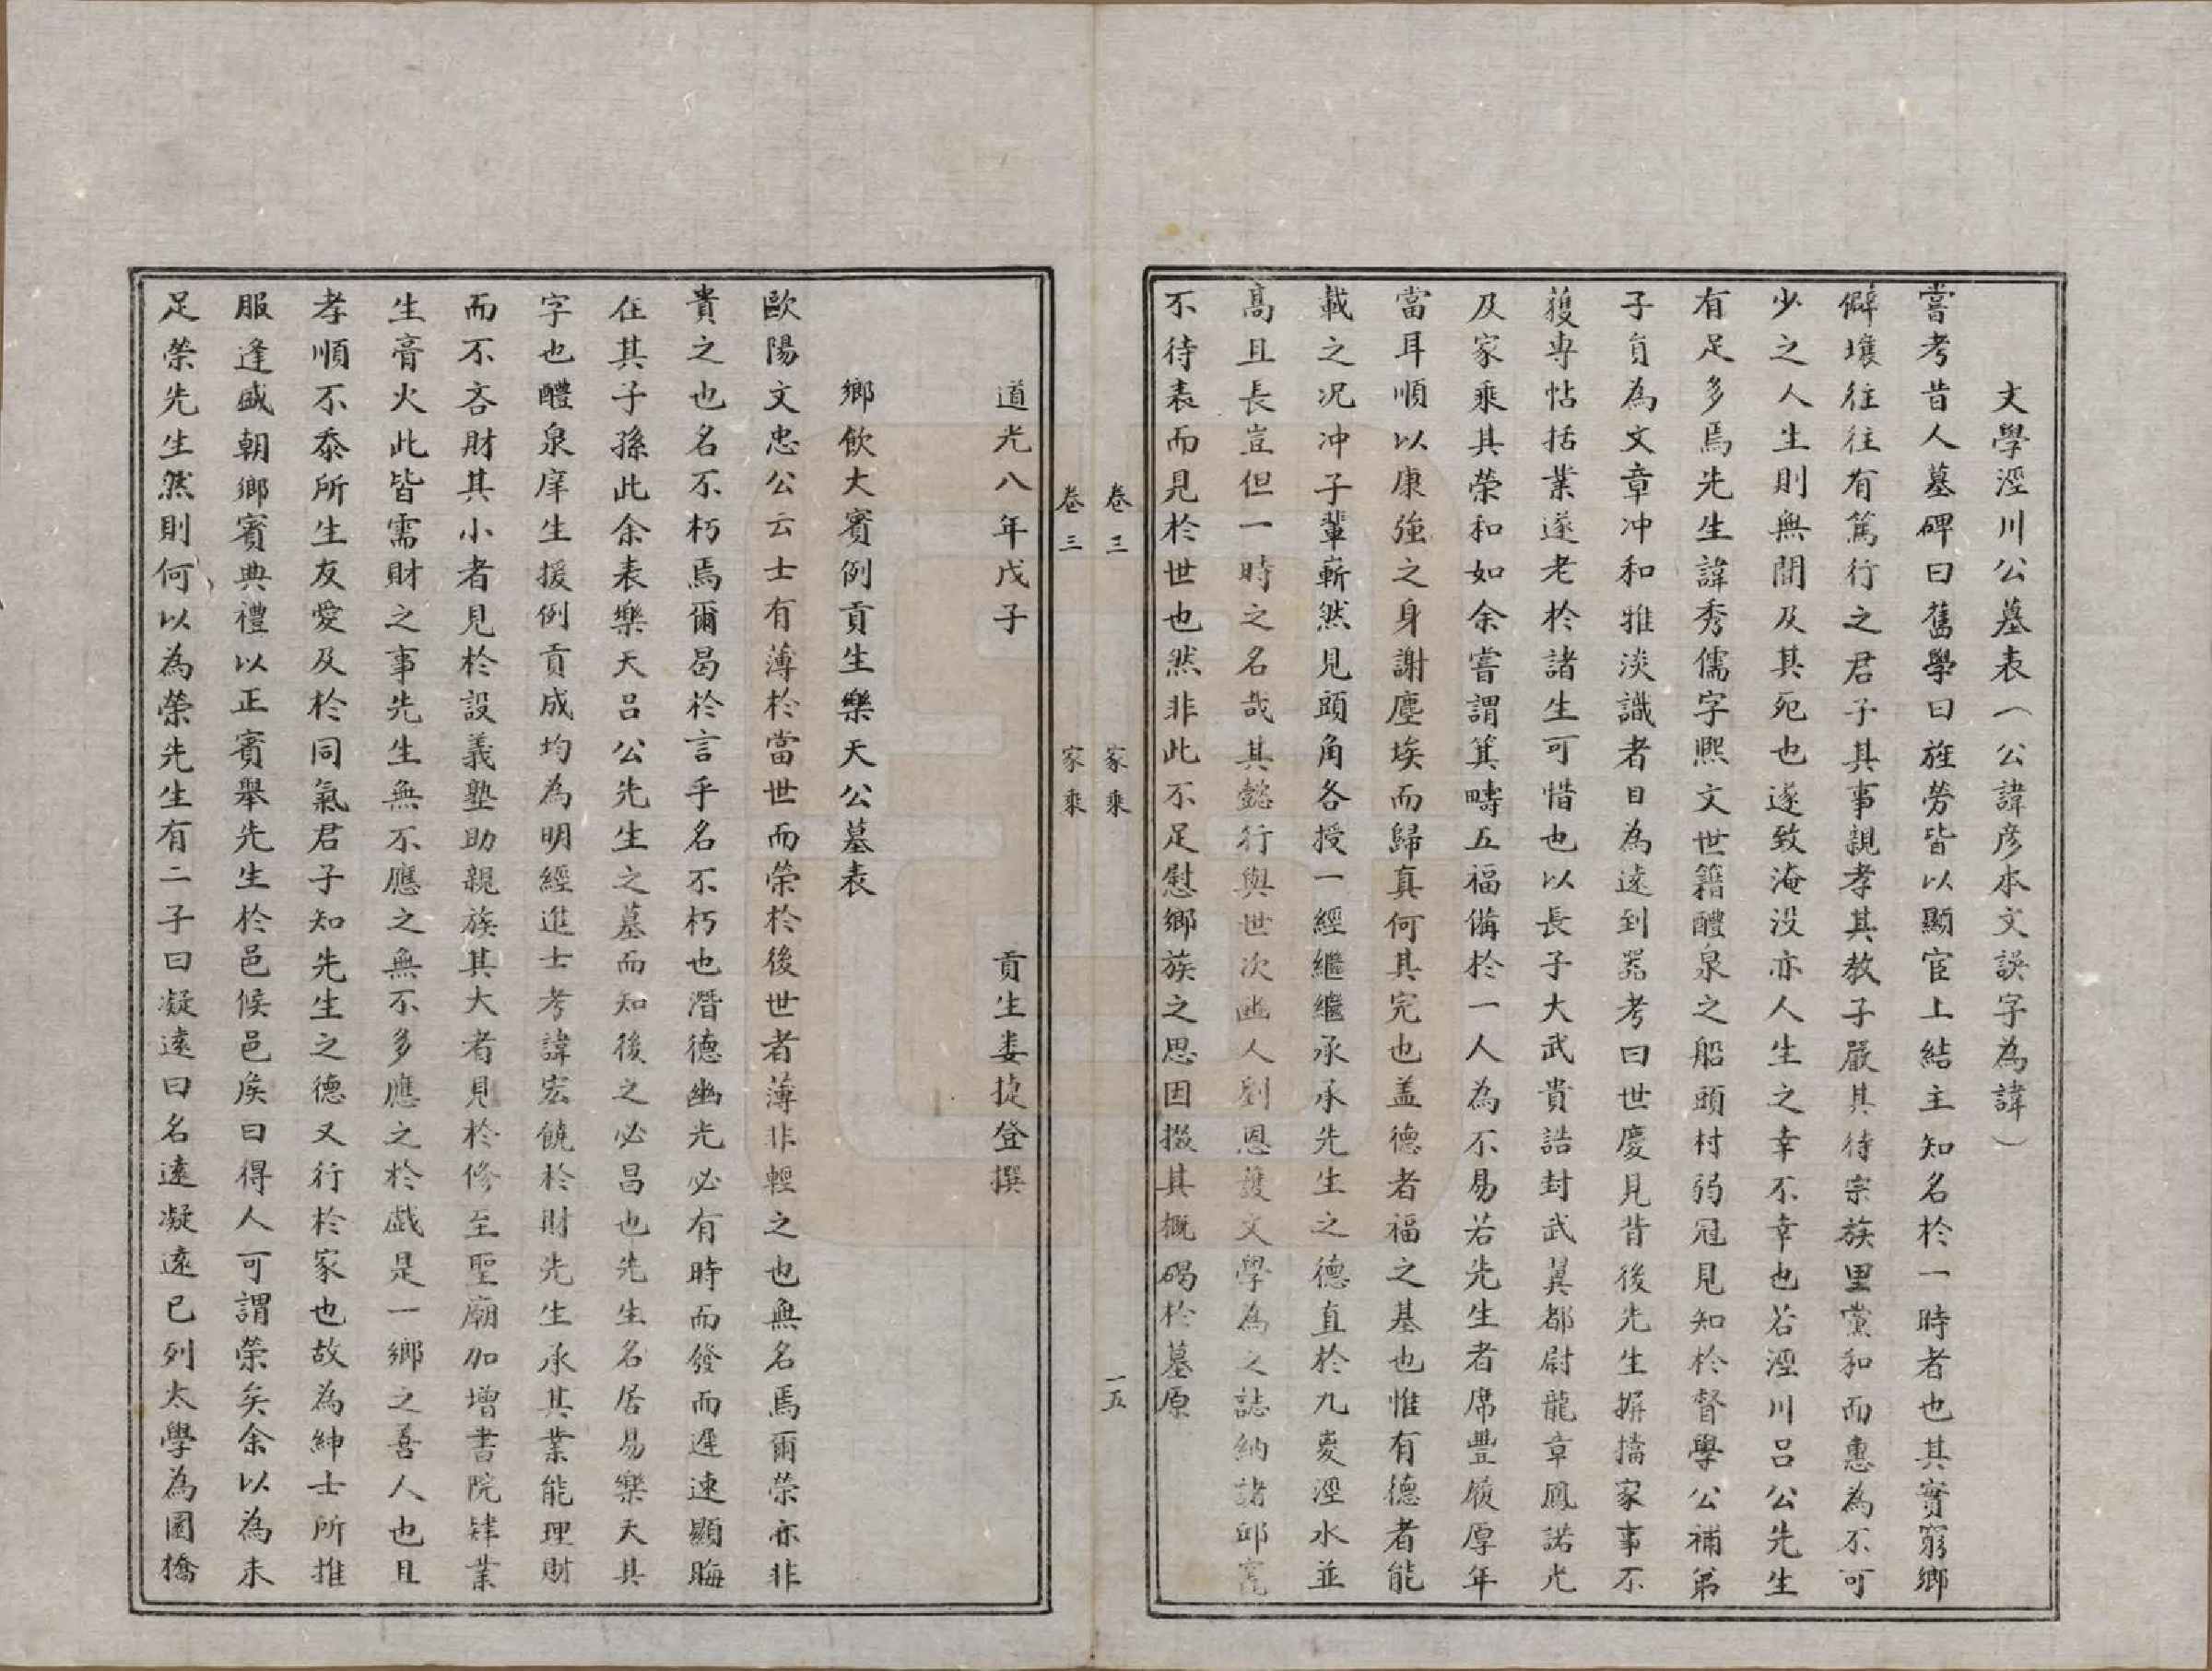 文學涇川公墓表（公諱彦本文誤字為諱）
嘗考昔人墓碑曰舊學曰旌勞皆以顯宦上結主知名於一時者也其實窮鄉
僻壤往往有篤行之君子其事親孝其教子嚴其待宗族里黨和而惠為不可
少之人生則無聞及其死也遂致淹没亦人生之幸不幸也若涇川吕公先生
有足多焉先生諱秀儒字熙文世籍醴泉之船頭村弱冠見知於督學公補弟
子員為文章冲和雅淡識者目為遠到器考曰世慶見背後先生摒擋家事不
獲專帖括業遂老於諸生可惜也以長子大武貴誥封武翼都尉龍章鳳誥光
及家乘其榮和如余嘗謂箕疇五福備於一人為不易若先生者席豐履厚年
當耳順以康強之身謝塵埃而歸真何其完也盖德者福之基也惟有德者能
載之况冲子輩嶄然見頭角各授一經繼繼承承先生之德直於九嵏涇水並
高且長豈但一時之名哉其懿行與世次邠人劉恩護文學為之誌納諸邱窀
不待表而見於世也然非此不足慰鄉族之思因掇其概碣於墓原
卷三　家乘　一五
卷三　家乘
道光八年戊子　貢生婁捷登撰
鄉飲大賓例貢生樂天公墓表
歐陽文忠公云士有薄於當世而榮於後世者薄非輕之也無名焉爾榮亦非
貴之也名不朽焉爾曷於言乎名不朽也潛德幽光必有時而發而遲速顯晦
在其子孫此余表樂天吕公先生之墓而知後之必昌也先生名居易樂天其
字也醴泉庠生援例貢成均為明經進士考諱宏饒於財先生承其業能理財
而不吝財其小者見於設義塾助親族其大者見於修至聖廟加增書院肄業
生膏火此皆需財之事先生無不應之無不多應之於戲是一鄉之善人也且
孝順不忝所生友愛及於同氣君子知先生之德又行於家也故為紳士所推
服逢盛朝鄉賓典禮以正賓舉先生於邑候邑矦曰得人可謂榮矣余以為未
足榮先生然則何以為榮先生有二子曰凝遠曰名遠凝遠已列太學為圜橋